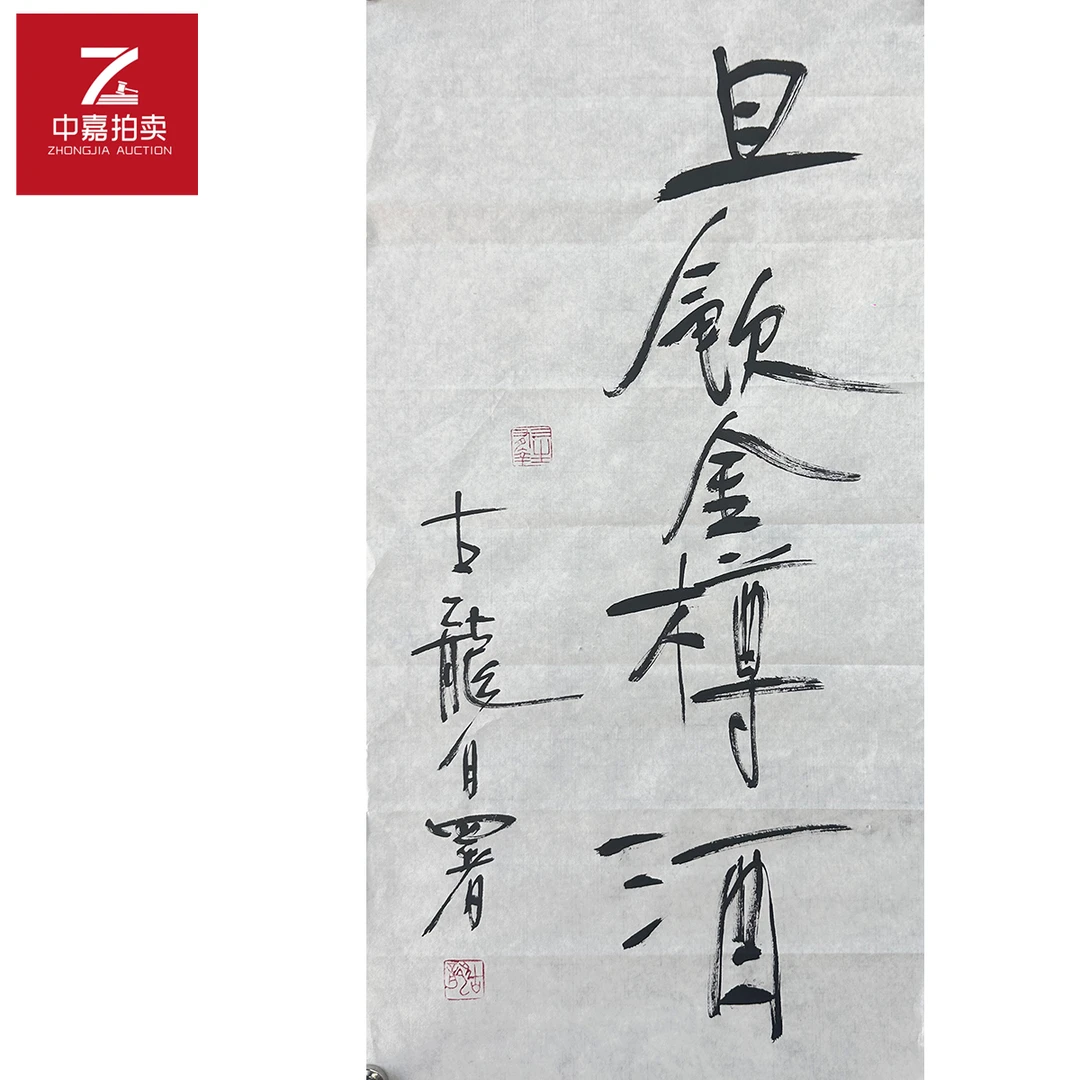 中嘉拍卖
ZHONGJIA AUCTION
且飲金樽酒
古龍自署